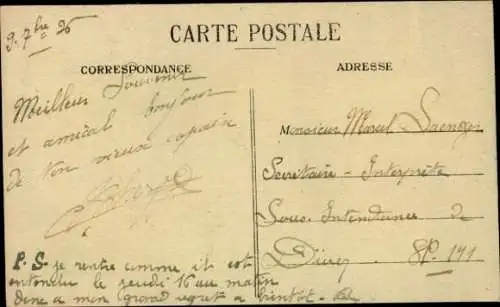 9. 7bre 26
CARTE POSTALE
CORRESPONDANCE
ADRESSE
Meilleur Souvenir
et amical bonjour
de ton vieux copain
Monsieur Marcel
Secrétaire - Interprète
Sous-Intendance de
Düren SP. 171
P.S. je rentre comme, il est
entendu le jeudi 16 au matin
donc a mon grand regret a bientot -